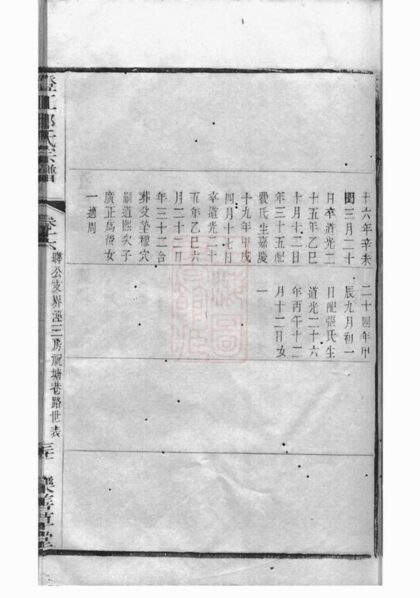 十六年辛未
閏三月二十
日卒道光二
十五年乙巳
十月十二日
年三十五配
費氏生嘉慶
十九年甲戌
四月十七日
卒道光二十
五年乙巳六
月二十二日
年三十二合
葬父塋穆穴
嗣道熙次子
廣正爲後女
一適周
二十四年甲
辰九月初一
日配張氏生
道光二十六
年丙午十二
月十二日女
一
氏宗譜
聯公支界涇三房塘巷路世表
樂善草堂